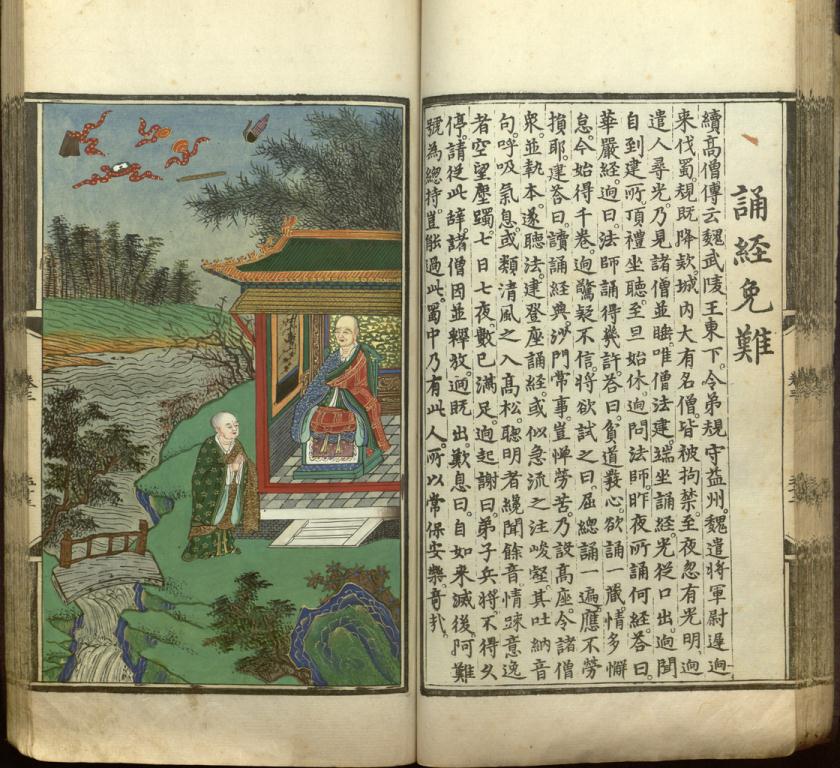 誦經免難
續高僧傳云魏武陵王東下。令弟規守益州。魏遣將軍尉遲迥
來伐蜀。規既降欵。城内大有名僧。皆被拘禁。至夜忽有光明。迥
遣人尋光。乃見諸僧並睡。唯僧法建。端坐誦經。光從口出。迥聞
自到建所。頂禮坐聽。至旦始休。迥問法師。昨夜所誦何經。答曰。
華嚴經。迥曰。法師誦得幾許。答曰。貧道發心。欲誦一藏。情多懈
怠。今始得千卷。迥驚疑不信。將欲試之曰。屈總誦一遍。應不勞
損耶。建答曰。讀誦經典。沙門常事。豈憚勞苦。乃設高座。令諸僧
衆。並執本。遂聽法。建登座誦經。或似急流之注峻壑。其吐納音
句。呼吸氣息。或類清風之入高松。聰明者纔聞餘音。情踈意逸
者空望塵躅。七日七夜。數已滿足。迥起謝曰。弟子兵將。不得久
停。請從此辭。諸僧因並釋放。迥既出。歎息曰。自如來滅後。阿難
號為總持。豈能過此。蜀中乃有此人。所以常保安樂。奇哉。